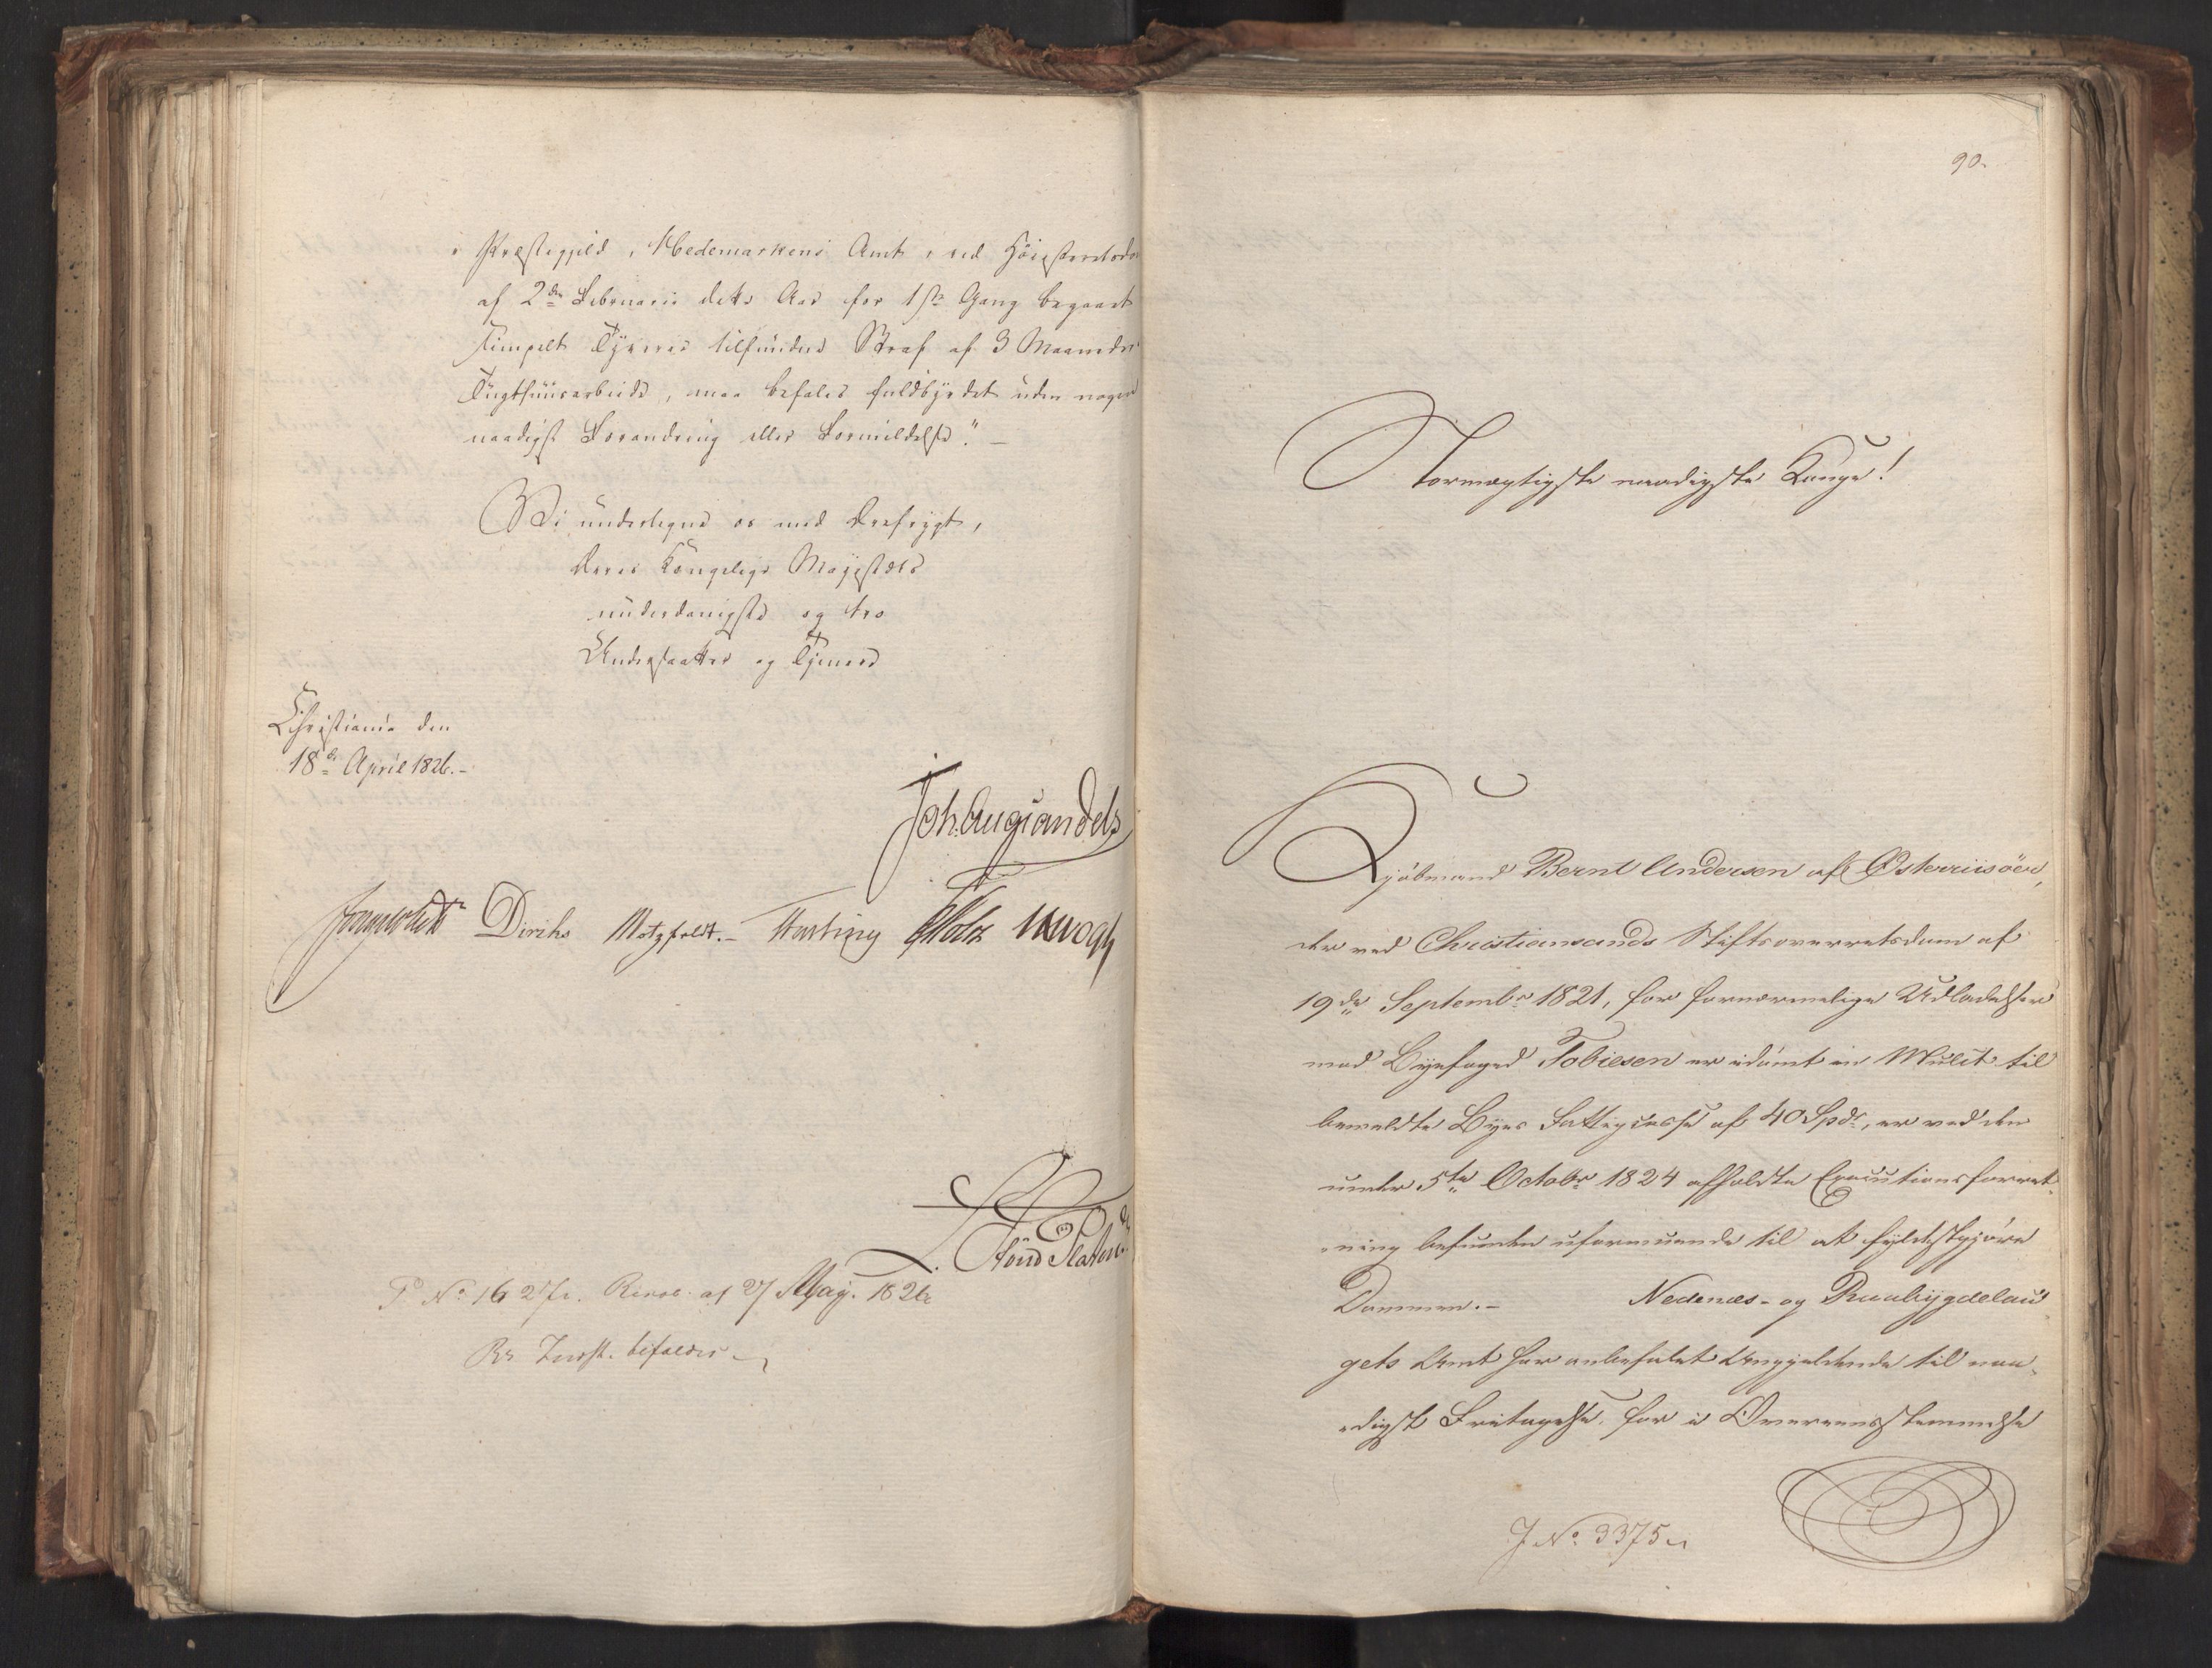 i Præstegjeld, Hedemarkens Amt, ved Höiesteretsdom
af 2den Februarii dette Aar for 1ste Gang begaaet
simpelt Tyverie tilfundne Straf af 3 Maaneders
Tugthuusarbeide, maa befales fuldbyrdet uden nogen
naadigst Forandring eller Formildelse." —
Vi undertegne os med Ærefrygt,
Deres Kongelige Majestæts
underdanigste og tro
Undersaatter og Tjenere
Christiania den
18de April 1826.-
Joh. Aug Sandels
Diriks Motzfeldt.- Krogh
P No 1627/2. Resol: af 27 May. 1826
Rs Indst. bifaldes
90.
Stormægtigste naadigste Konge!
Kjöbmand Bernt Andersen af Österriisöer,
der ved Christiansands Stiftsoverretsdom af
19de Septembr 1821, for fornærmelige Udladelser
mod Byefoged Tobiesen er idömt en Mulct til
bemeldte Byes Fattigcasse af 40 Spdr, er ved den
under 5te Octobr 1824 afholdte Executionsforret-
-ning befunden uformuende til at fyldestgjöre
Dommen.- Nedenæs- og Raabygdelau-
gets Amt har anbefalet Angjeldende til naa-
-digst Fritagelse, for i Overeensstemmelse
J. No. 3375